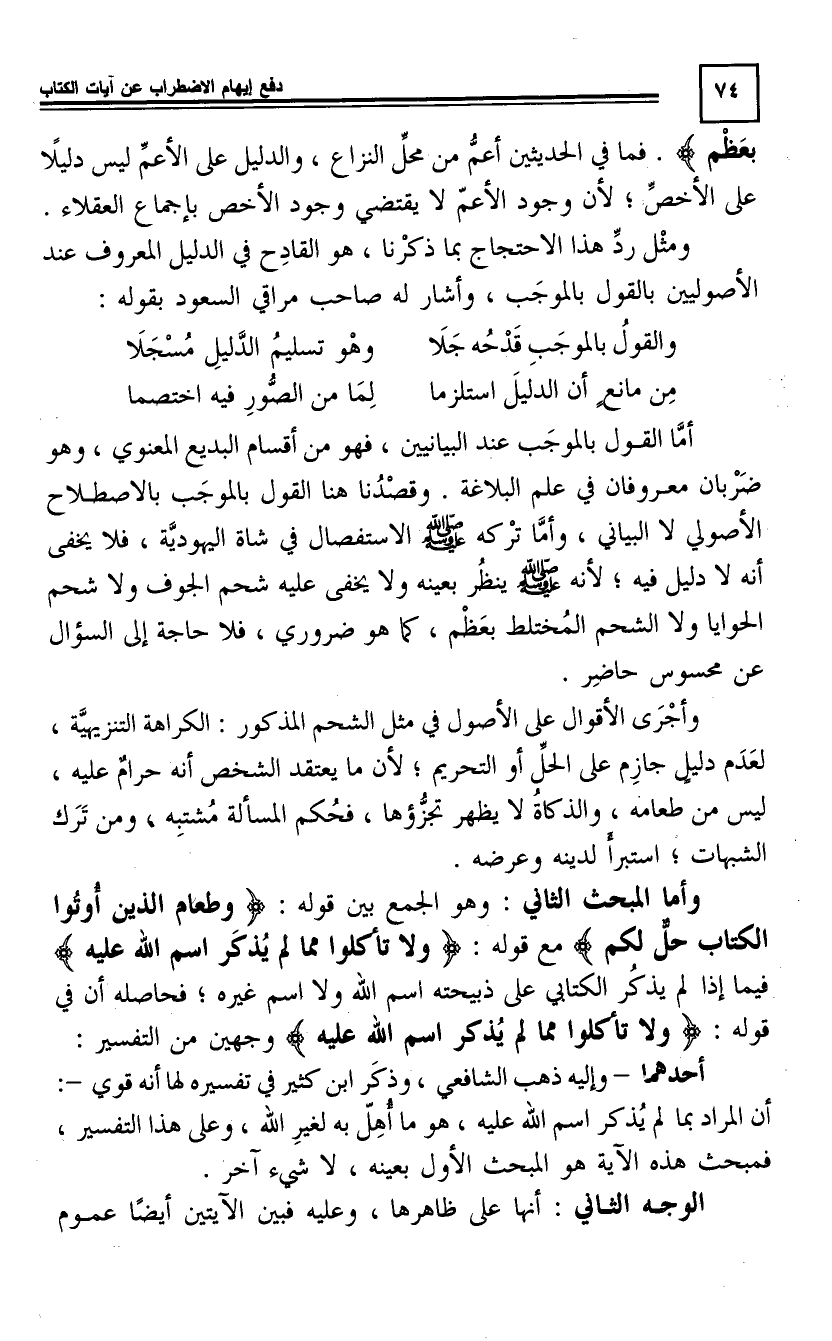 ٧٤
دفع إيهام الاضطراب عن آيات الكتاب
بعَظْم ﴾ . فما في الحديثين أعمُّ من محلِّ النزاع ، والدليل على الأعمِّ ليس دليلًا
على الأخصِّ ؛ لأن وجود الأعمّ لا يقتضي وجود الأخص بإجماع العقلاء .
ومثْل ردِّ هذا الاحتجاج بما ذكرْنا ، هو القادِح في الدليل المعروف عند
الأصوليين بالقول بالموجَب ، وأشار له صاحب مراقي السعود بقوله :
والقولُ بالموجَبِ قَدْحُه جَلَا وهْو تسليمُ الدَّليلِ مُسْجَلَا
مِن مانعٍ أن الدليلَ استلزما لِمَا من الصُّورِ فيه اختصما
أمَّا القـول بالموجَب عند البيانيين ، فهو من أقسام البديع المعنوي ، وهو
ضَرْبان معـروفان في علم البلاغة . وقصْدُنا هنا القول بالموجَب بالاصطـلاح
الأصولي لا البياني ، وأمَّا ترْكه ﷺ الاستفصال في شاة اليهوديَّة ، فلا يخفى
أنه لا دليل فيه ؛ لأنه ﷺ ينظُر بعينه ولا يخفى عليه شحم الجوف ولا شحم
الحوايا ولا الشحم المُختلط بعَظْم ، كما هو ضروري ، فلا حاجة إلى السؤال
عن محسوس حاضِر .
وأجْرَى الأقوال على الأصول في مثل الشحم المذكور : الكراهة التنزيهيَّة ،
لعَدَم دليلٍ جازِم على الحلِّ أو التحريم ؛ لأن ما يعتقد الشخص أنه حرامٌ عليه ،
ليس من طعامه ، والذكاةُ لا يظهر تجزُّؤها ، فحُكم المسألة مُشتبِه ، ومن تَرَك
الشبهات ؛ استبرأَ لدينه وعرضه .
وأما المبحث الثاني : وهو الجمع بين قوله : ﴿ وطعام الذين أُوتُوا
الكتاب حلٌّ لكم ﴾ مع قوله : ﴿ ولا تأكلوا مما لم يُذكَر اسم الله عليه ﴾
فيما إذا لم يذكُر الكتابي على ذبيحته اسم الله ولا اسم غيره ؛ فحاصله أن في
قوله : ﴿ ولا تأكلوا مما لم يُذكر اسم الله عليه ﴾ وجهين من التفسير :
أحدهما – وإليه ذهب الشافعي ، وذكَر ابن كثير في تفسيره لها أنه قوي –:
أن المراد بما لم يُذكر اسم الله عليه ، هو ما أُهِلّ به لغيرِ الله ، وعلى هذا التفسير ،
فمبحث هذه الآية هو المبحث الأول بعينه ، لا شيء آخر .
الوجـه الثـاني : أنها على ظاهرها ، وعليه فبين الآيتين أيضًا عمـوم